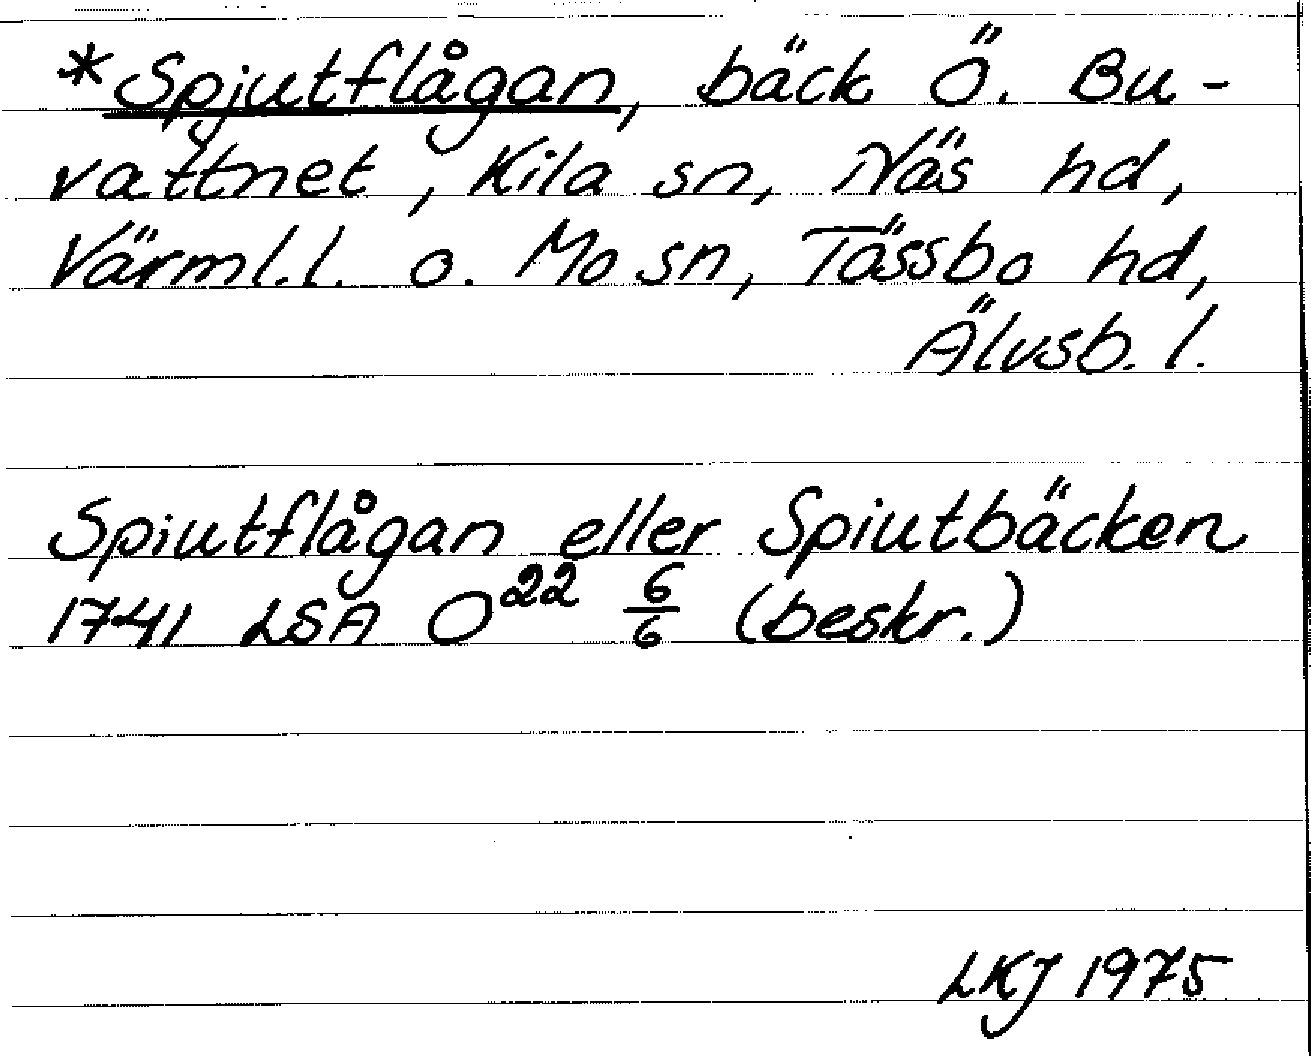 *Spjutflågan, bäck Ö. Bu-
vattnet, Kila sn, Näs hd,
Värml.l. o. Mo sn, Tössbo hd,
Älvsb. l.
Spiutflågan eller Spiutbäcken
1741 LSA O²² 6/6 (beskr.)
LKJ 1975